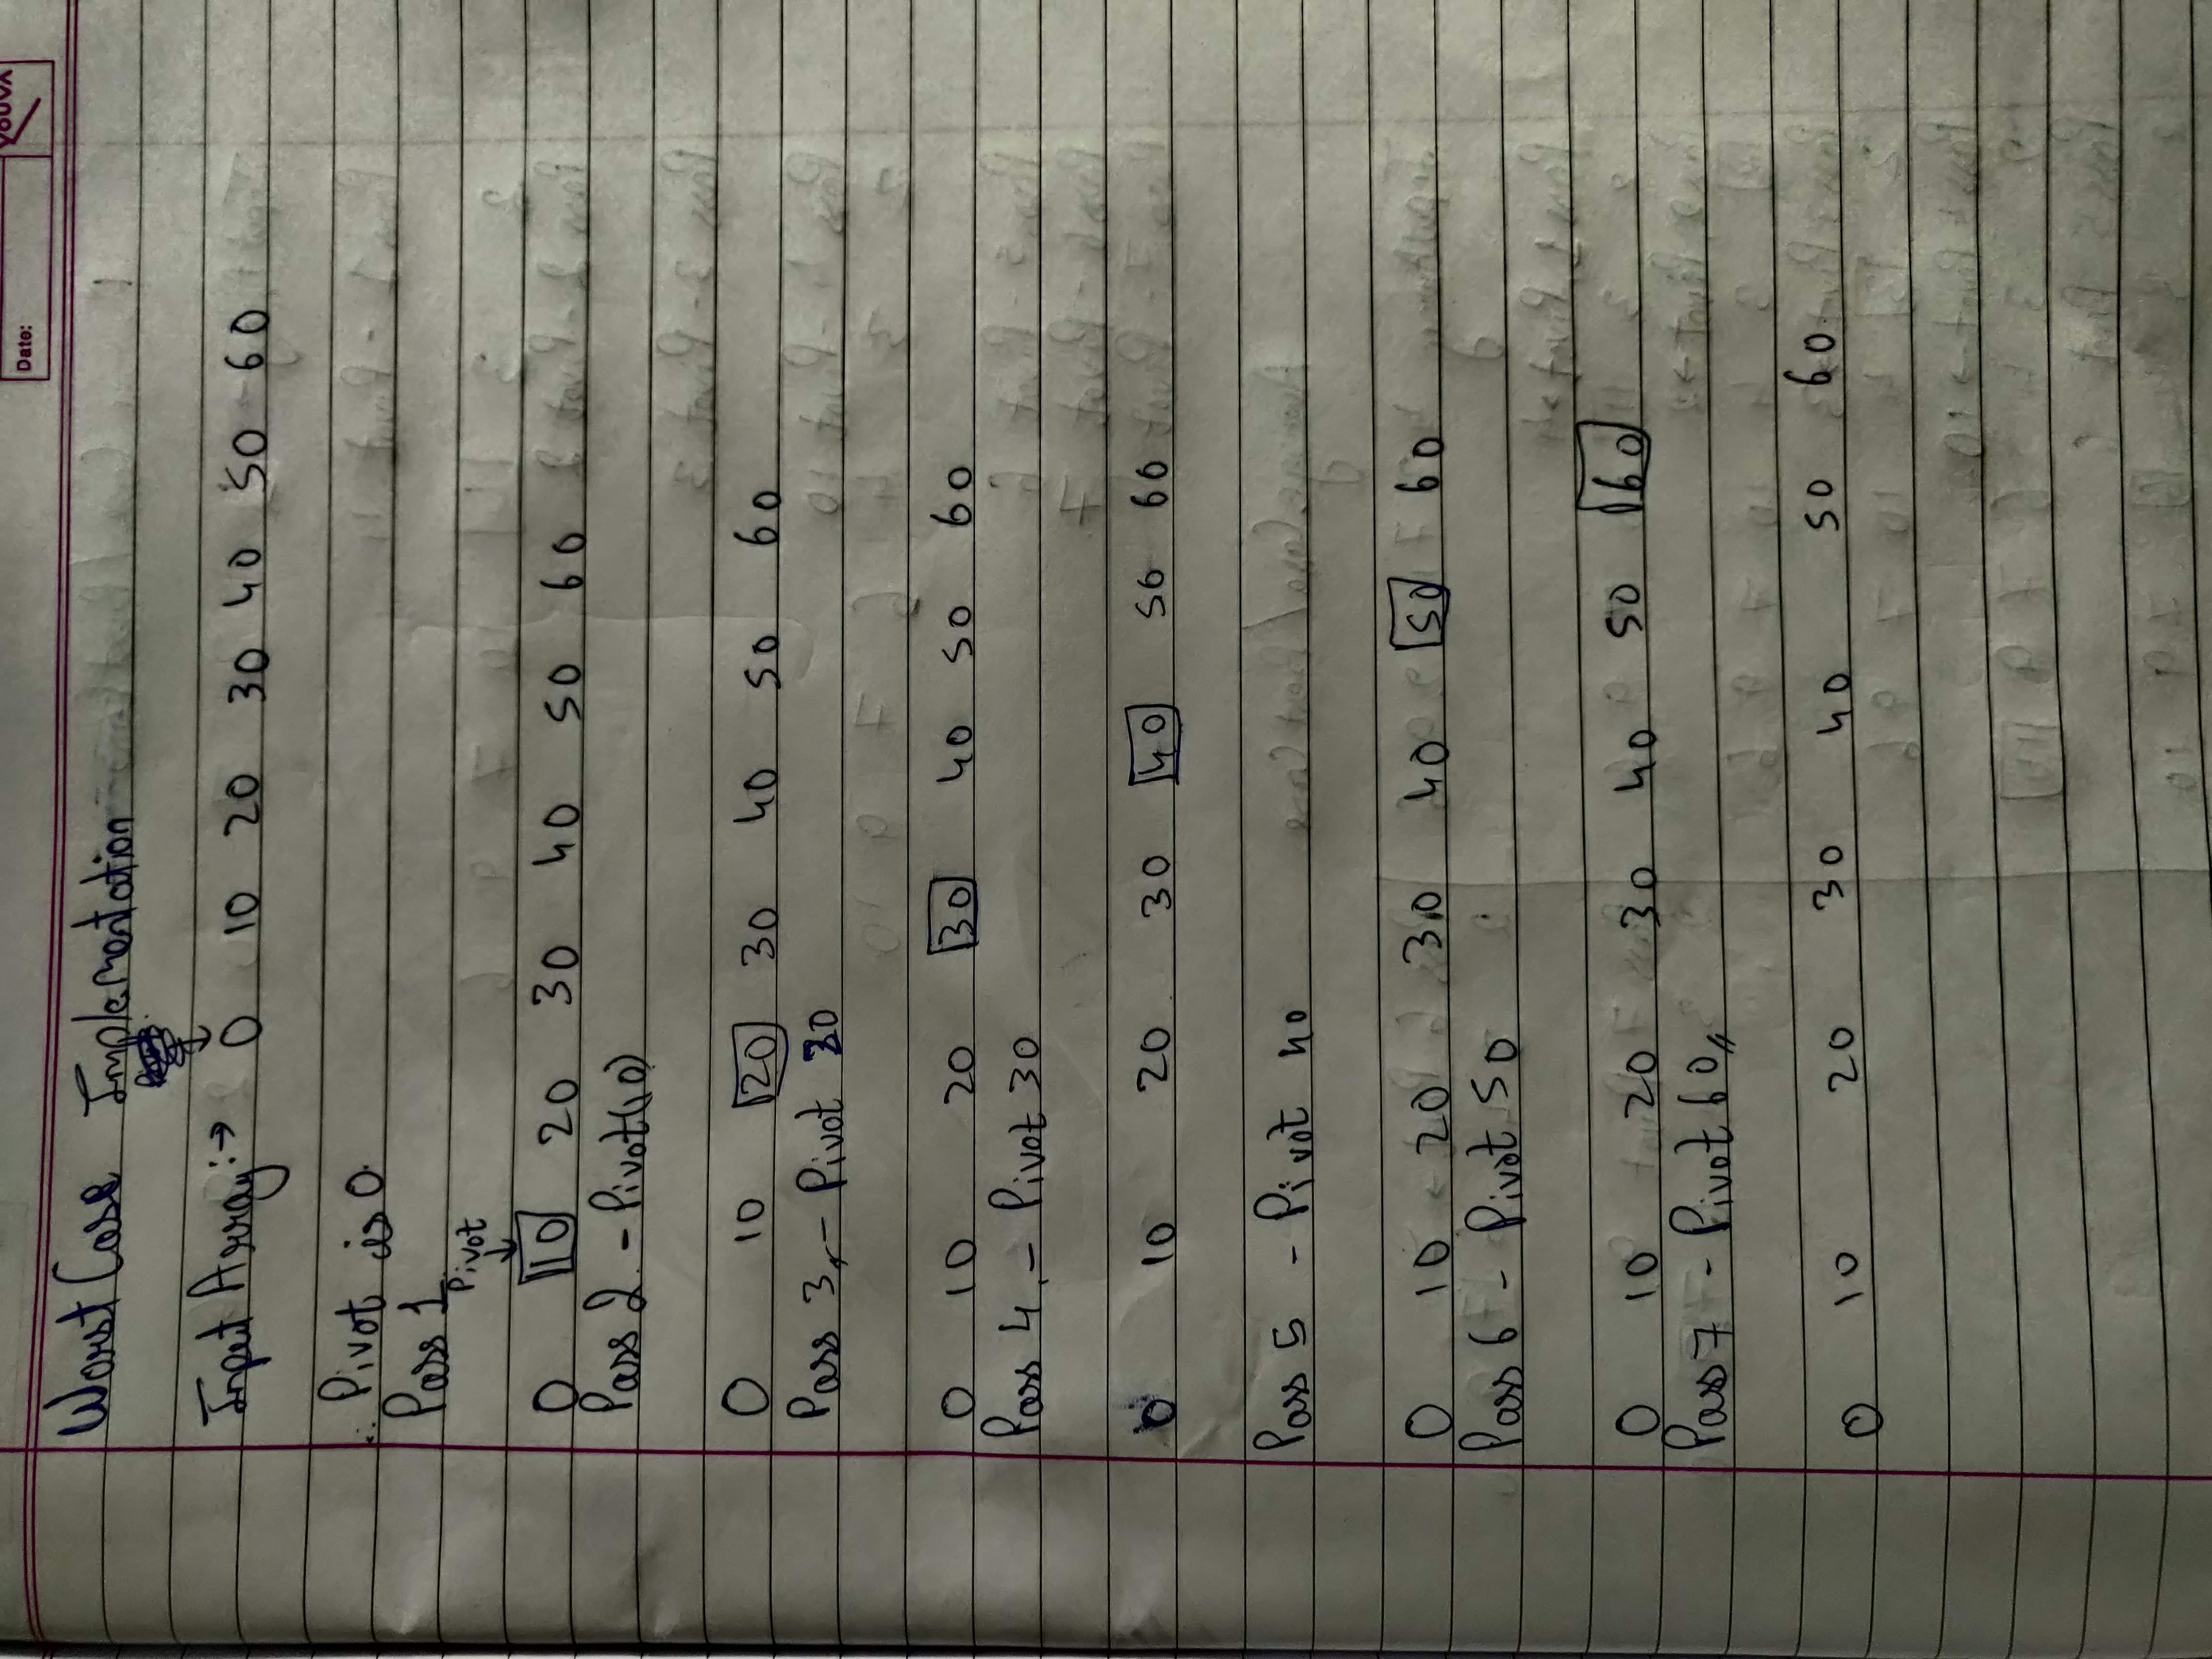 YOUVA
Date:
Worst Case Implementation
Input Array:→ 0 10 20 30 40 50 60
∴ Pivot is 0.
Pass 1
Pivot
0 10 20 30 40 50 60
Pass 2 - Pivot(10)
0 10 20 30 40 50 60
Pass 3, - Pivot 20
0 10 20 30 40 50 60
Pass 4, - Pivot 30
0 10 20 30 40 50 60
Pass 5 - Pivot 40
0 10 20 30 40 50 60
Pass 6 - Pivot 50
0 10 20 30 40 50 60
Pass 7 - Pivot 60,,
0 10 20 30 40 50 60